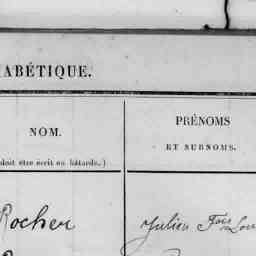 ABÉTIQUE.
NOM.
PRÉNOMS
ET SURNOMS.
doit être écrit en bâtarde.)
Rocher
Julien Fois Lou